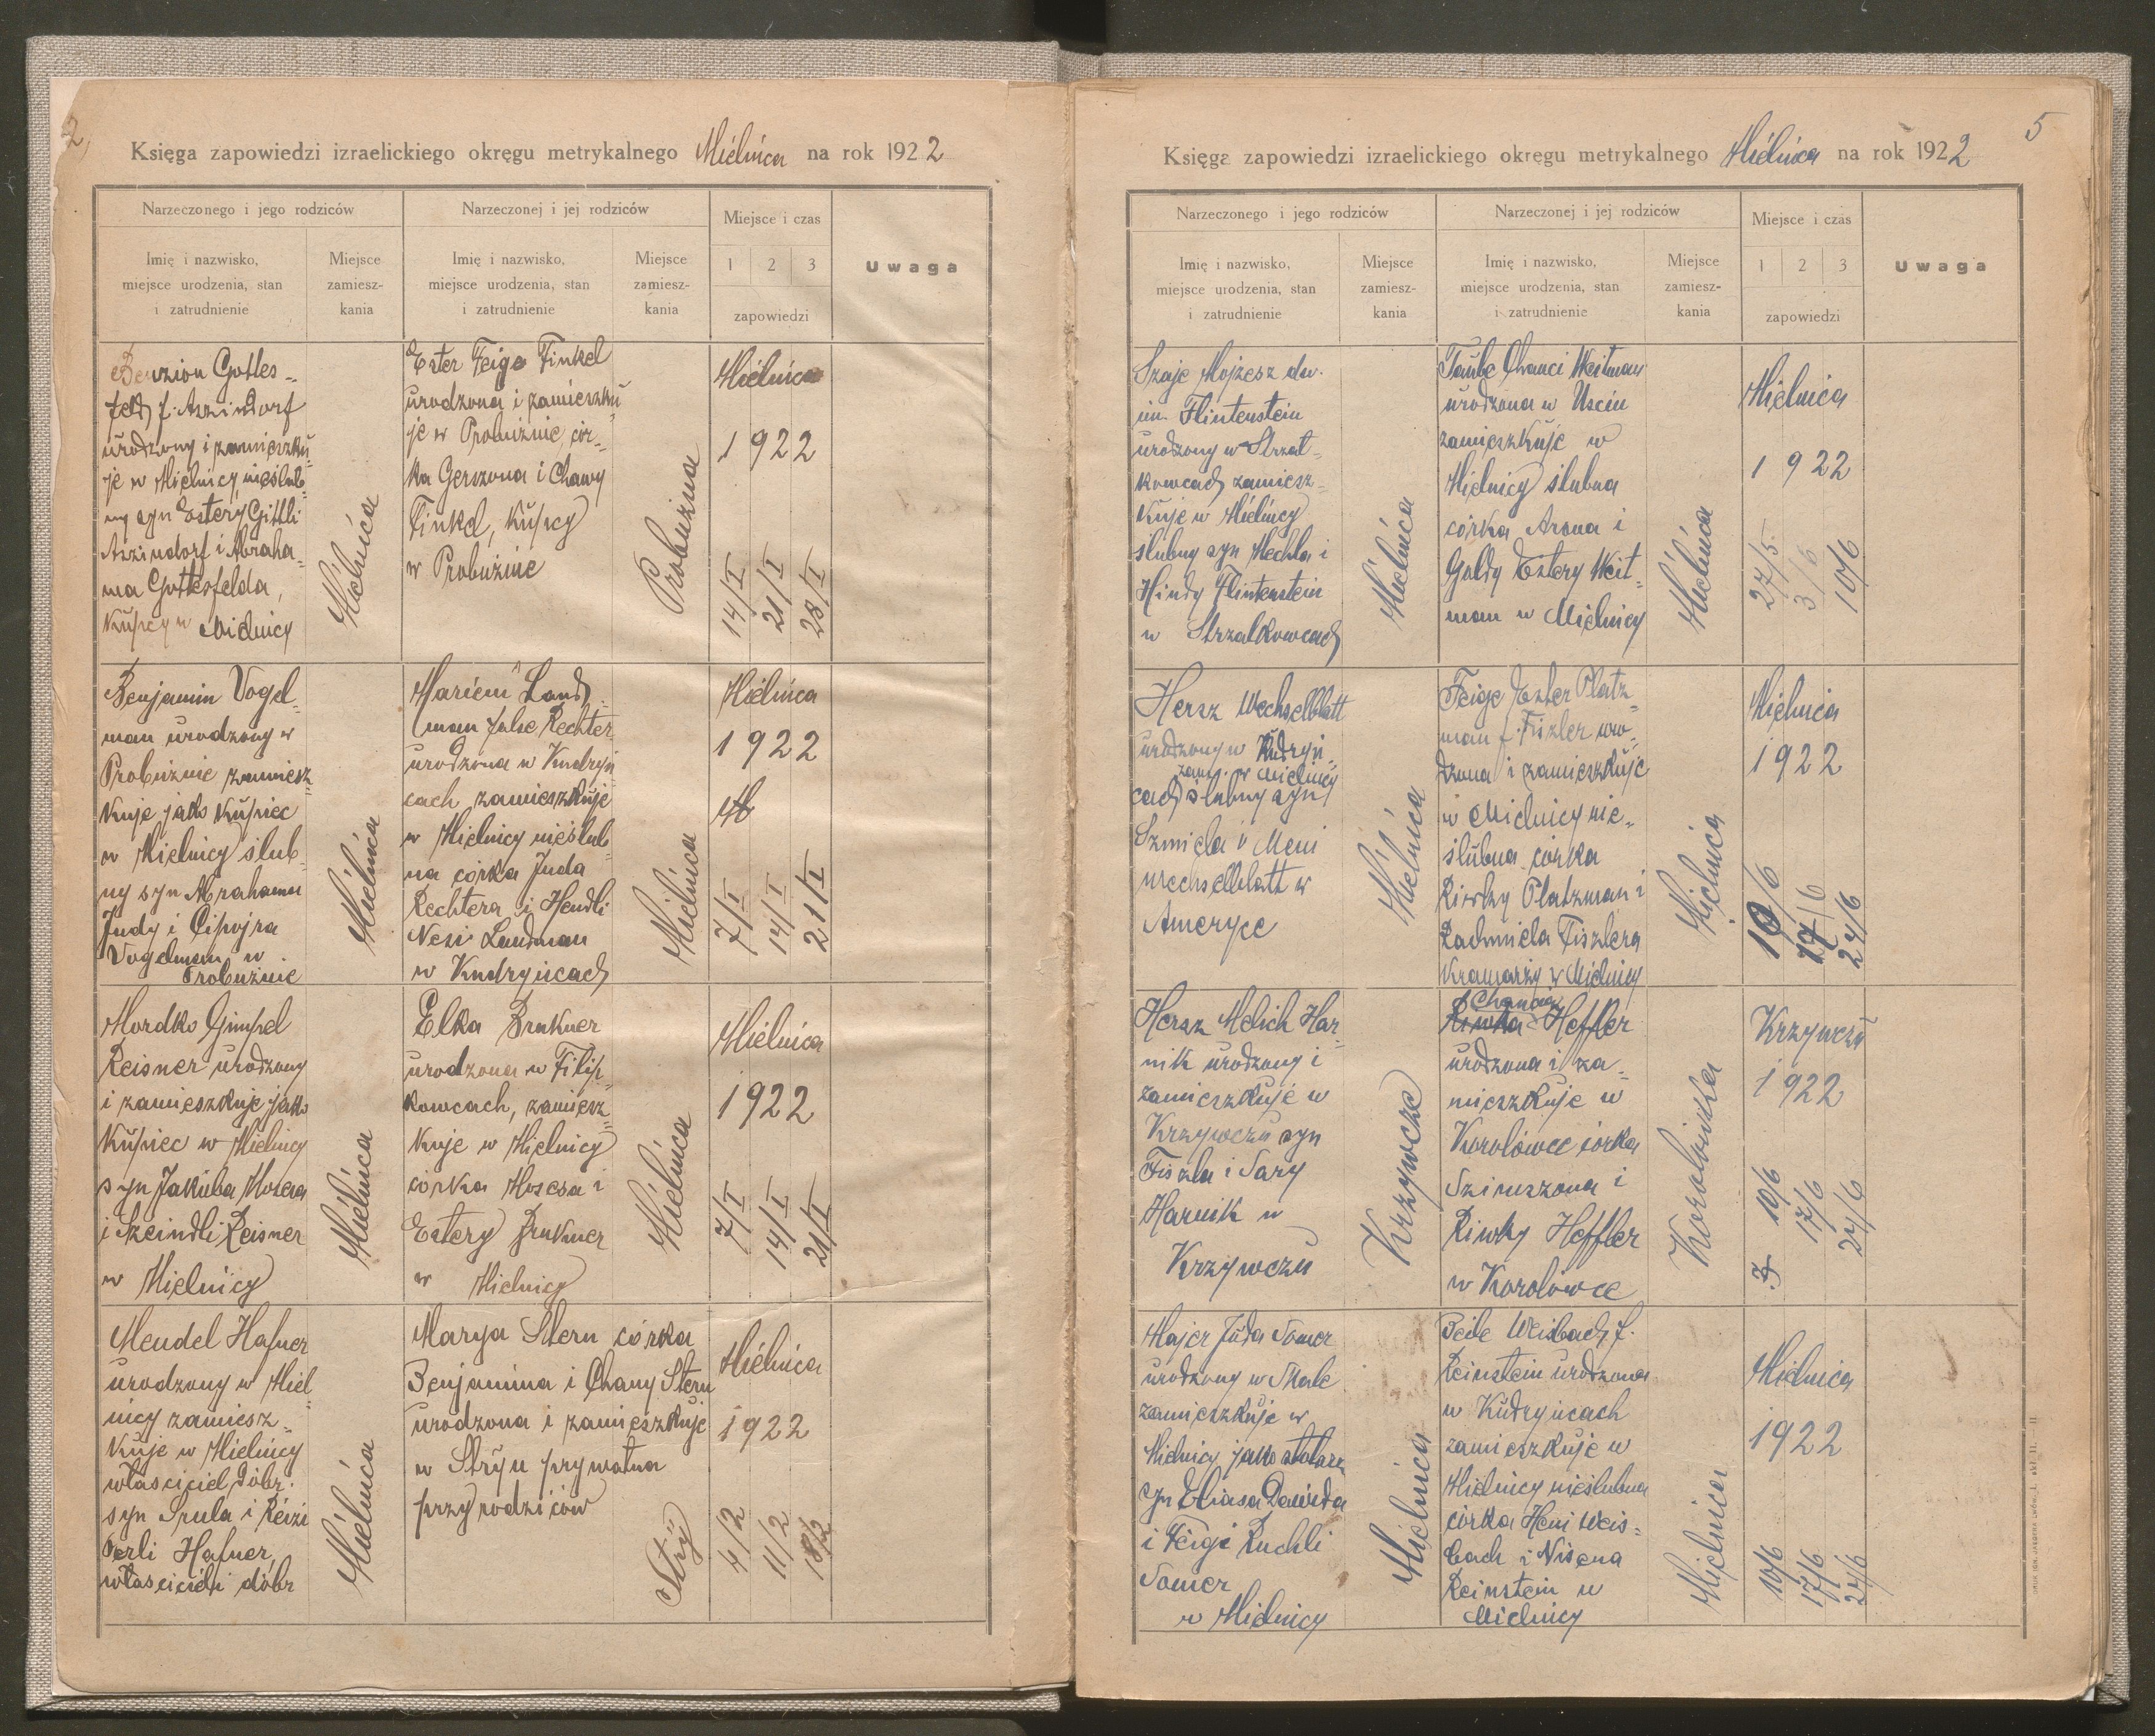 2,
Księga zapowiedzi izraelickiego okręgu metrykalnego Mielnica na rok 1922
Narzeczonego i jego rodziców
Narzeczonej i jej rodziców
Miejsce i czas
Uwaga
Imię i nazwisko,
miejsce urodzenia, stan
i zatrudnienie
Miejsce
zamiesz-
kania
Imię i nazwisko,
miejsce urodzenia, stan
i zatrudnienie
Miejsce
zamiesz-
kania
1 2 3
zapowiedzi
Benzion Gottes-
feld f. Aszindorf
urodzony i zamieszku
je w Mielnicy, nieślub-
ny syn Estery Gittli
Aszindorf i Abraha-
ma Gottesfelda,
Kupcy w Mielnicy
Mielnica
Ester Feige Finkel
urodzona i zamieszku
je w Probużnie, cór-
ka Gerszona i Chawy
Finkel, Kupcy
w Probużnie
Probużna
Mielnica
1922
14/I
21/I
28/I
Benjamin Vogel-
man urodzony w
Probużnie zamiesz-
kuje jako Kupiec
w Mielnicy ślub-
ny syn Abrahama
Judy i Cipojra
Vogelman w
Probużnie
Mielnica
Mariem Land-
man false Rechter
urodzona w Kudryń
cach zamieszkuje
w Mielnicy nieślub-
na córka Juda
Rechtera i Hendli
Nesi Landman
w Kudryńcach
Mielnica
Mielnica
1922
7/I
14/I
21/I
Mordko Gimpel
Reisner urodzony
i zamieszkuje jako
Kupiec w Mielnicy
syn Jakuba Mosera
i Szeindli Reisner
w Mielnicy
Mielnica
Elka Brukner
urodzona w Filip-
kowcach, zamiesz-
kuje w Mielnicy
córka Mosesa i
Estery Brukner
w Mielnicy
Mielnica
Mielnica
1922
7/I
14/I
21/I
Mendel Hafner
urodzony w Miel-
nicy zamiesz-
kuje w Mielnicy
właściciel dóbr.
syn Srula i Reizi
Perli Hafner,
właścicieli dóbr
Mielnica
Marya Stern córka
Benjamina i Chany Stern
urodzona i zamieszkuje
w Stryju prywatna
przy rodziców
Stryj
Mielnica
1922
4/2
11/2
18/2
5
Księga zapowiedzi izraelickiego okręgu metrykalnego Mielnica na rok 1922
Narzeczonego i jego rodziców
Narzeczonej i jej rodziców
Miejsce i czas
Uwaga
Imię i nazwisko,
miejsce urodzenia, stan
i zatrudnienie
Miejsce
zamiesz-
kania
Imię i nazwisko,
miejsce urodzenia, stan
i zatrudnienie
Miejsce
zamiesz-
kania
1 2 3
zapowiedzi
Szaje Mojżesz dw.
im. Flintenstein
urodzony w Strzał-
kowcach zamiesz-
kuje w Mielnicy
ślubny syn Mechla i
Hindy Flintenstein
w Strzałkowcach
Mielnica
Taube Chanci Weitman
urodzona w Uściu
zamieszkuje w
Mielnicy ślubna
córka Arona i
Goldy Estery Weit-
man w Mielnicy
Mielnica
Mielnica
1922
27/5.
3/6
10/6
Hersz Wechselblatt
urodzony w Kudryń-
zam. w Mielnicy
cach ślubny syn
Szmiela i Meni
Wechselblatt w
Ameryce
Mielnica
Feige Ester Platz-
man f. Fiszler uro-
dzona i zamieszkuje
w Mielnicy nie-
ślubna córka
Riwky Platzman i
Rachmiela Fiszlera
Kramarzy w Mielnicy
Mielnica
Mielnica
1922
10/6
17/6
24/6
Hersz Melich Har-
nik urodzony i
zamieszkuje w
Krzywczu syn
Fiszla i Sary
Harnik w
Krzywczu
Krzywcze
Chancia
Riwka Heffler
urodzona i za-
mieszkuje w
Korolówce córka
Szimszona i
Riwky Heffler
w Korolówce
Korolówka
Krzywczu
1922
10/6
17/6
24/6
Majer Juda Somer
urodzony w Skale
zamieszkuje w
Mielnicy jako stolarz
syn Eliasa Dawida
i Feigi Ruchli
Somer
w Mielnicy
Mielnica
Beile Weisbach f.
Reinstein urodzona
w Kudryńcach
zamieszkuje w
Mielnicy nieślubna
córka Heni Weis-
bach i Nisena
Reinstein w
Mielnicy
Mielnica
Mielnica
1922
10/6
17/6
24/6